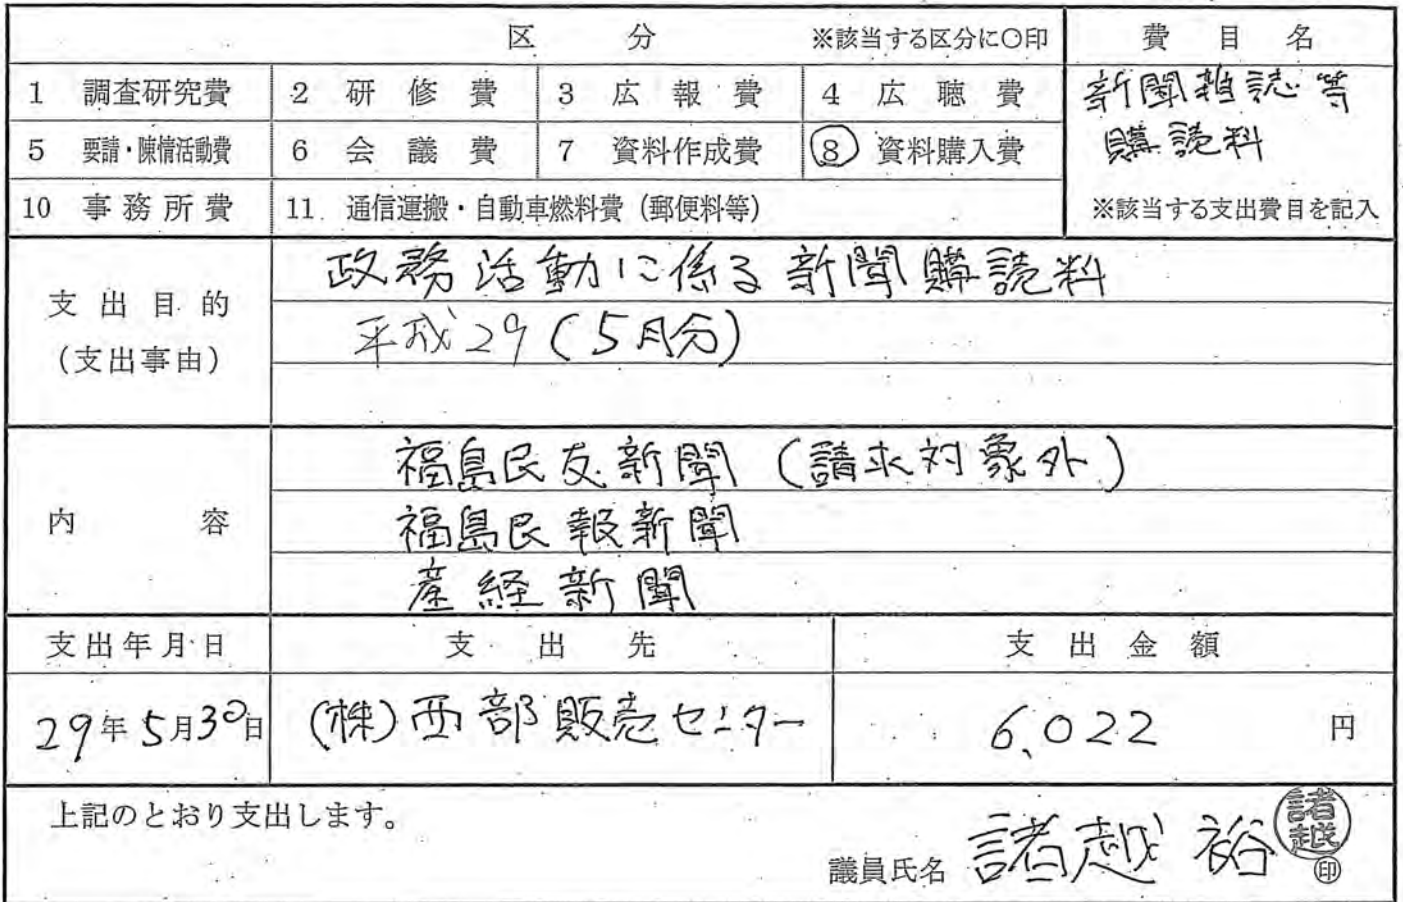 区 分 ※該当する区分に○印 費 目 名
1 調査研究費 2 研 修 費 3 広 報 費 4 広 聴 費 新聞雑誌等
5 要請・陳情活動費 6 会 議 費 7 資料作成費 8 資料購入費 購読料
10 事務所費 11 通信運搬・自動車燃料費（郵便料等） ※該当する支出費目を記入
政務活動に係る新聞購読料
支出目的
平成29（5月分）
（支出事由）
福島民友新聞（請求対象外）
内 容 福島民報新聞
産経新聞
支出年月日 支 出 先 支 出 金 額
29年5月30日 (株)西部販売センター 6,022 円
上記のとおり支出します。
議員氏名 諸越 裕 諸越 印